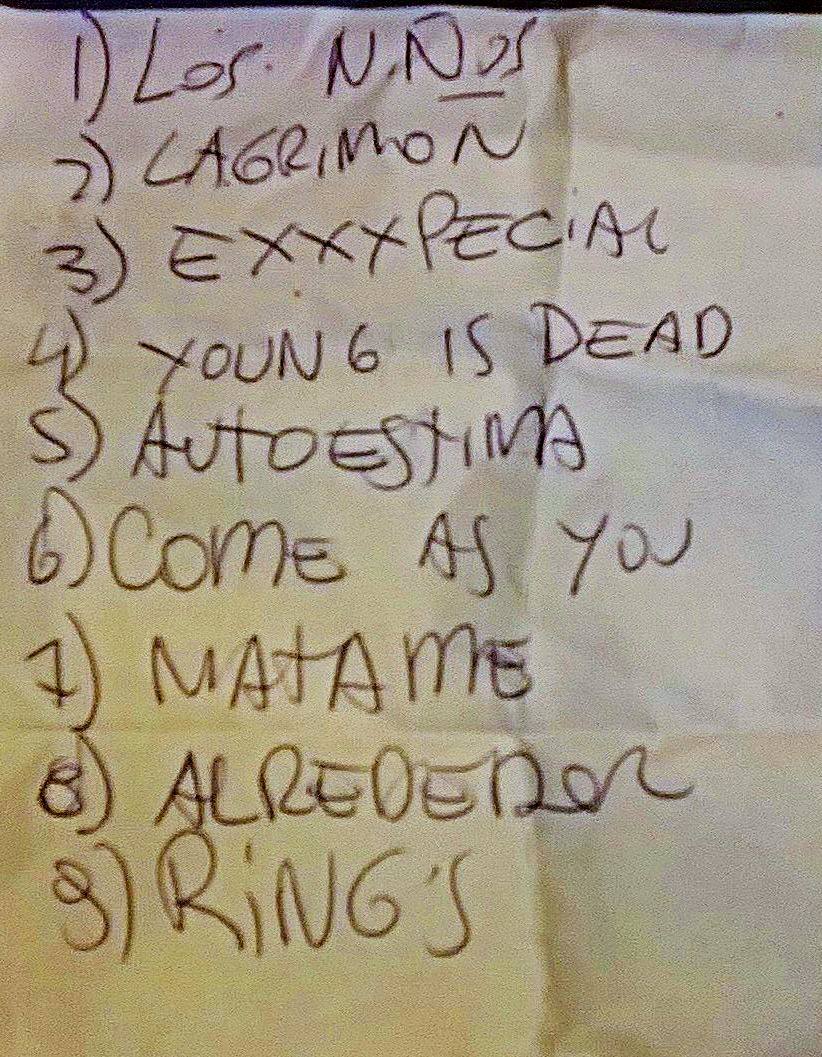 1) Los. NiÑos
2) LAGRiMON
3) EXXXPECiAL
4) YOUNG IS DEAD
5) AUTOESTIMA
6) COME AS YOU
7) MATAME
8) ALREDEDOR
9) RiNG'S